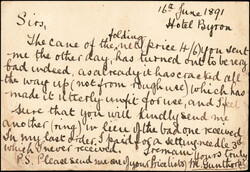 16th June 1891
Hotel Byron
Sirs,
The cane of the folding net, price 4/6 you sent
me the other day, has turned out to be very
bad indeed, as already it has cracked all
the way up (not from rough use) which has
made it utterly unfit for use, and I feel
sure that you will kindly send me
another (ring) in lieu of the bad one received.
In my last order, I paid for a setting needle 3d
which I never received.
Yours truly
P.S. Please send me one of your Price lists